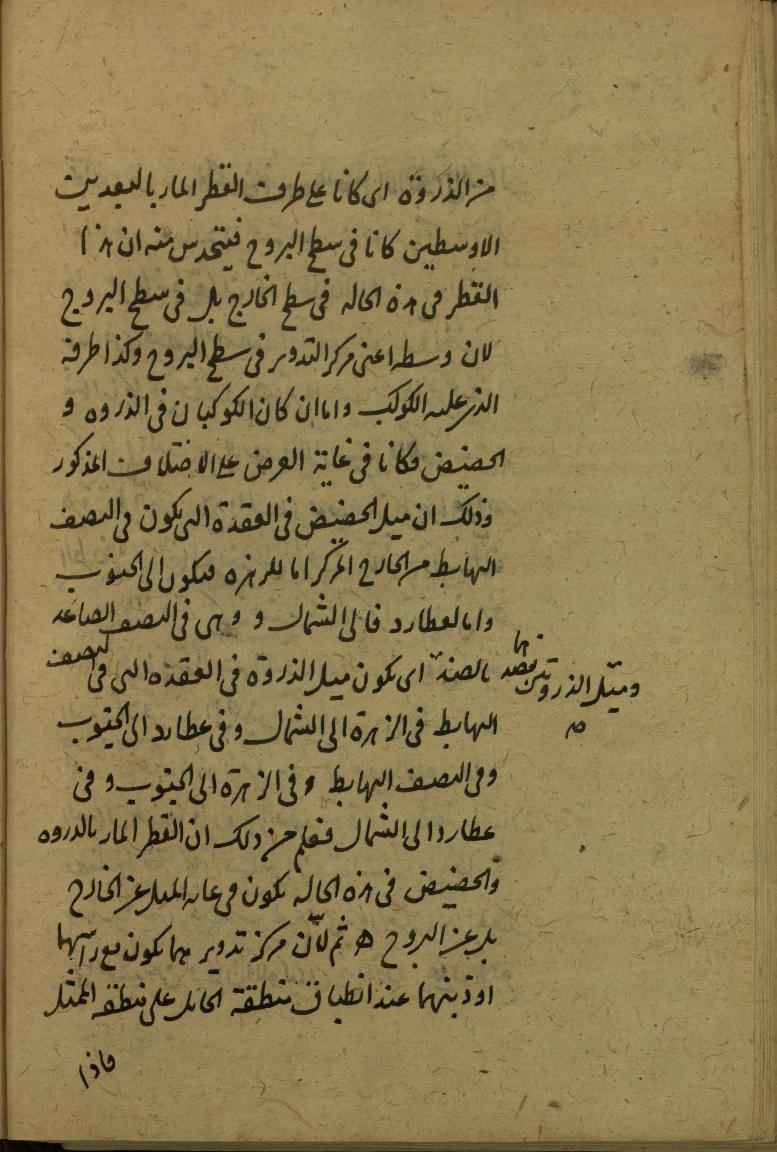 من الذروة اى كانا على طرفى القطر المار بالبعدين
الاوسطين كانا فى سطح البروج فيتحدس منه ان هذا
القطر فى هذه الحاله فى سطح الخارج بل فى سطح البروج
لان وسطه اعنى مركز التدوير فى سطح البروج وكذا طرفه
الذى عليه الكوكب واما ان كان الكوكبان فى الذروه و
الحضيض وكانا فى غاية العرض على الاختلاف المذكور
وذلك ان ميل الحضيض فى العقدة التى يكون فى النصف
الهابط من الخارج المركز اما للزهره فيكون الى الجنوب
واما لعطارد فالى الشمال و وهى فى النصف الصاعد
بالضد اى يكون ميل الذروة فى العقده التى فى النصف
وميل الذروتين بضدهما
صح
الهابط فى الزهرة الى الشمال و فى عطارد الى الجنوب
وفى النصف الهابط و فى الزهرة الى الجنوب و فى
عطارد الى الشمال فعلم من ذلك ان القطر المار بالذروه
والحضيض فى هذه الحاله يكون فى غاية الميل عن الخارج
بل عن البروج ثم لان مركز تدويرهما يكون مع راسيهما
او ذنبهما عند انطباق منطقة المائل على منطقة الممثل
فاذا